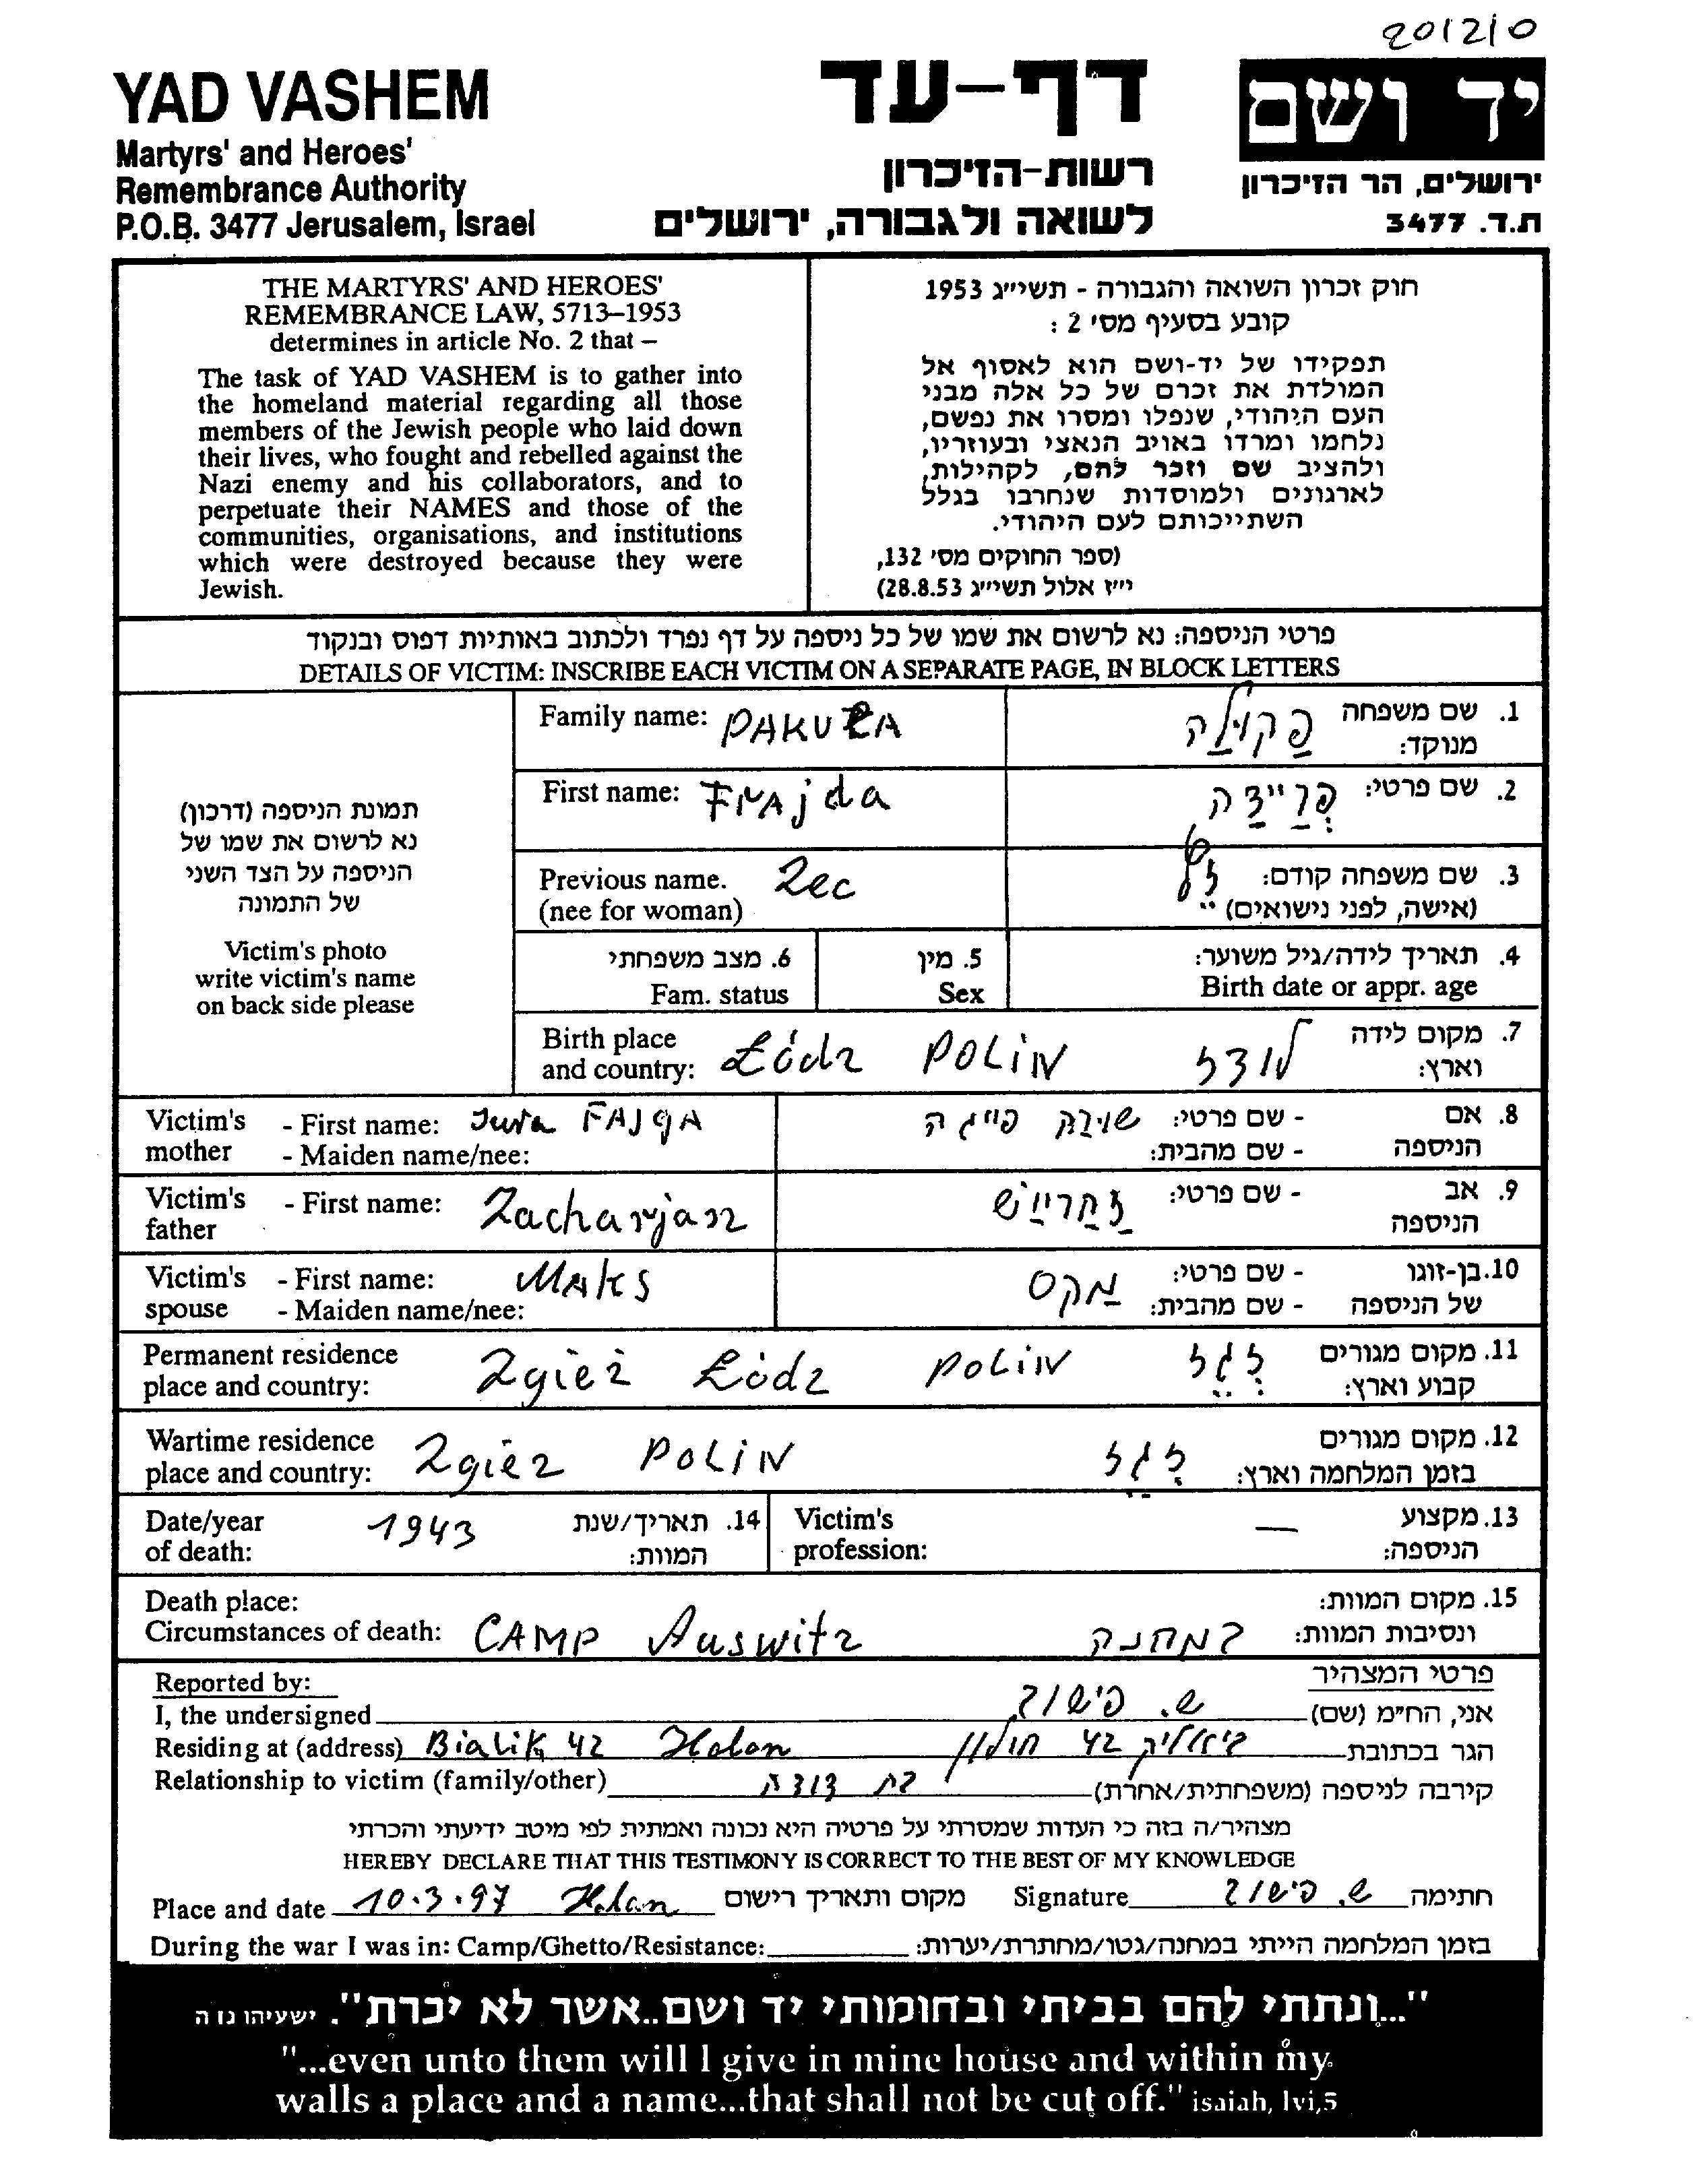 201210
YAD VASHEM
Martyrs' and Heroes'
Remembrance Authority
P.O.B. 3477 Jerusalem, Israel
דף-עד
רשות-הזיכרון
לשואה ולגבורה, ירושלים
יד ושם
ירושלים, הר הזיכרון
ת.ד. 3477
THE MARTYRS' AND HEROES'
REMEMBRANCE LAW, 5713–1953
determines in article No. 2 that –
The task of YAD VASHEM is to gather into
the homeland material regarding all those
members of the Jewish people who laid down
their lives, who fought and rebelled against the
Nazi enemy and his collaborators, and to
perpetuate their NAMES and those of the
communities, organisations, and institutions
which were destroyed because they were
Jewish.
חוק זכרון השואה והגבורה - תשי״ג 1953
קובע בסעיף מס׳ 2 :
תפקידו של יד-ושם הוא לאסוף אל
המולדת את זכרם של כל אלה מבני
העם היהודי, שנפלו ומסרו את נפשם,
נלחמו ומרדו באויב הנאצי ובעוזריו,
ולהציב שם וזכר להם, לקהילות,
לארגונים ולמוסדות שנחרבו בגלל
השתייכותם לעם היהודי.
(ספר החוקים מס׳ 132,
י״ז אלול תשי״ג 28.8.53)
פרטי הניספה: נא לרשום את שמו של כל ניספה על דף נפרד ולכתוב באותיות דפוס ובנקוד
DETAILS OF VICTIM: INSCRIBE EACH VICTIM ON A SEPARATE PAGE, IN BLOCK LETTERS
תמונת הניספה (דרכון)
נא לרשום את שמו של
הניספה על הצד השני
של התמונה
Victim's photo
write victim's name
on back side please
Family name: PAKUŁA פַקוּלַה 1. שם משפחה
מנוקד:
First name: FrAjda פְרַיידַה 2. שם פרטי:
Previous name. Zec זֶץ 3. שם משפחה קודם:
(nee for woman) (אישה, לפני נישואים)
6. מצב משפחתי 5. מין 4. תאריך לידה/גיל משוער:
Fam. status Sex Birth date or appr. age
Birth place 7. מקום לידה
and country: Łódz POLiN לודז וארץ:
Victim's - First name: FAJgA פייגה - שם פרטי: 8. אם
mother - Maiden name/nee: - שם מהבית: הניספה
Victim's - First name: Zacharjasz זַחַרייַש - שם פרטי: 9. אב
father הניספה
Victim's - First name: MAkS מַקס - שם פרטי: 10. בן-זוגו
spouse - Maiden name/nee: - שם מהבית: של הניספה
Permanent residence 11. מקום מגורים
place and country: Zgież Łódz POLiN זְגֶז קבוע וארץ:
Wartime residence 12. מקום מגורים
place and country: Zgierz POLiN זְגֶז בזמן המלחמה וארץ:
Date/year 1943 14. תאריך/שנת Victim's — 13. מקצוע
of death: המוות: profession: הניספה:
Death place: 15. מקום המוות:
Circumstances of death: CAMP Auswitz במחנה ונסיבות המוות:
Reported by: פרטי המצהיר
I, the undersigned ש. פישוב אני, הח״מ (שם)
Residing at (address) Bialik 42 Holon ביאליק 42 חולון הגר בכתובת
Relationship to victim (family/other) בת דודה קירבה לניספה (משפחתית/אחרת)
מצהיר/ה בזה כי העדות שמסרתי על פרטיה היא נכונה ואמתית לפי מיטב ידיעתי והכרתי
HEREBY DECLARE THAT THIS TESTIMONY IS CORRECT TO THE BEST OF MY KNOWLEDGE
Place and date 10.3.97 Holon מקום ותאריך רישום Signature ש. פישוב חתימה
During the war I was in: Camp/Ghetto/Resistance: בזמן המלחמה הייתי במחנה/גטו/מחתרת/יערות:
"...ונתתי להם בביתי ובחומותי יד ושם..אשר לא יכרת". ישעיהו נו ה
"...even unto them will I give in mine house and within my
walls a place and a name...that shall not be cut off." isaiah, lvi,5